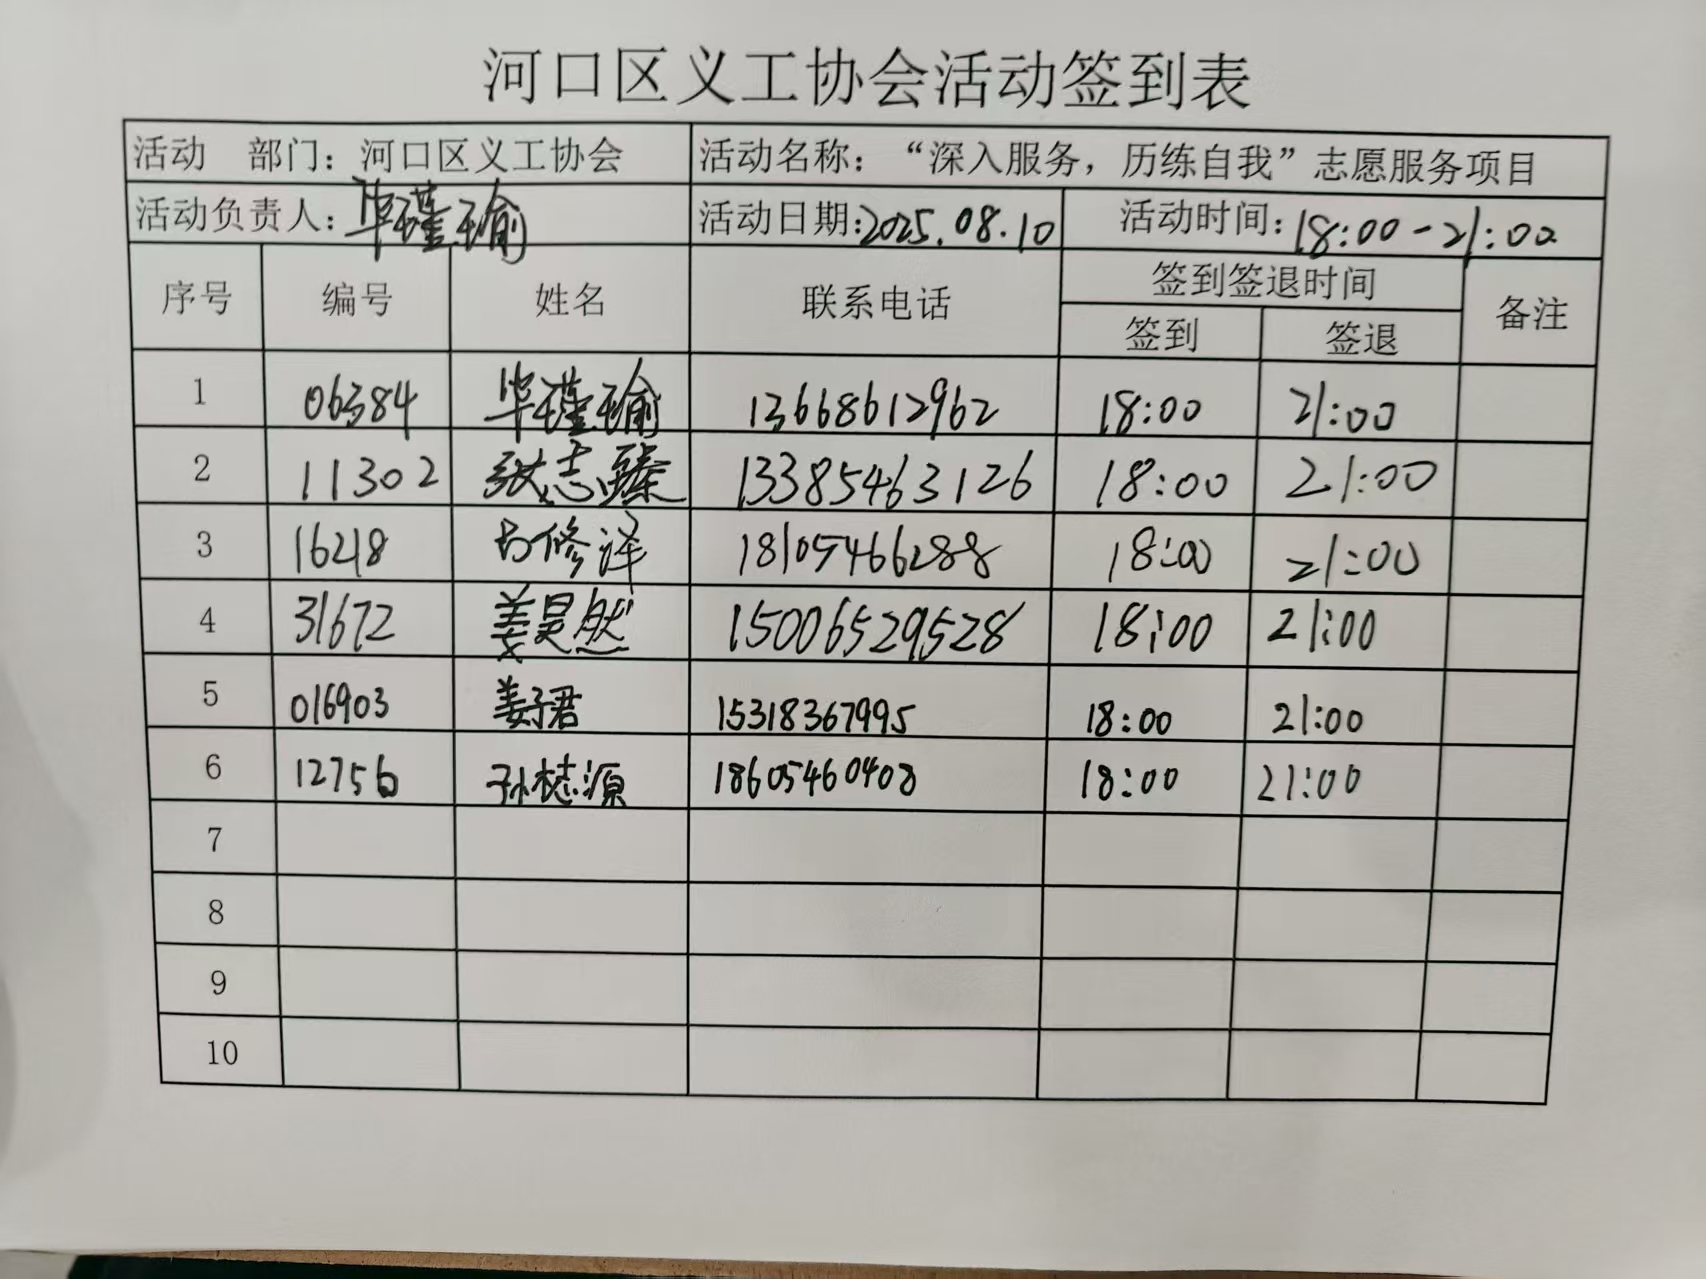 河口区义工协会活动签到表
活动 部门：河口区义工协会 活动名称：“深入服务，历练自我”志愿服务项目
活动负责人：毕瑾瑜 活动日期：2025.08.10 活动时间：18:00-21:00
序号 编号 姓名 联系电话 签到签退时间 备注
签到 签退
1 06384 毕瑾瑜 13668612962 18:00 21:00
2 11302 张志臻 13385463126 18:00 21:00
3 16218 修泽 18105466288 18:00 21:00
4 31672 姜昊然 15006529528 18:00 21:00
5 016903 姜子君 15318367995 18:00 21:00
6 12756 孙梽源 18605460408 18:00 21:00
7
8
9
10